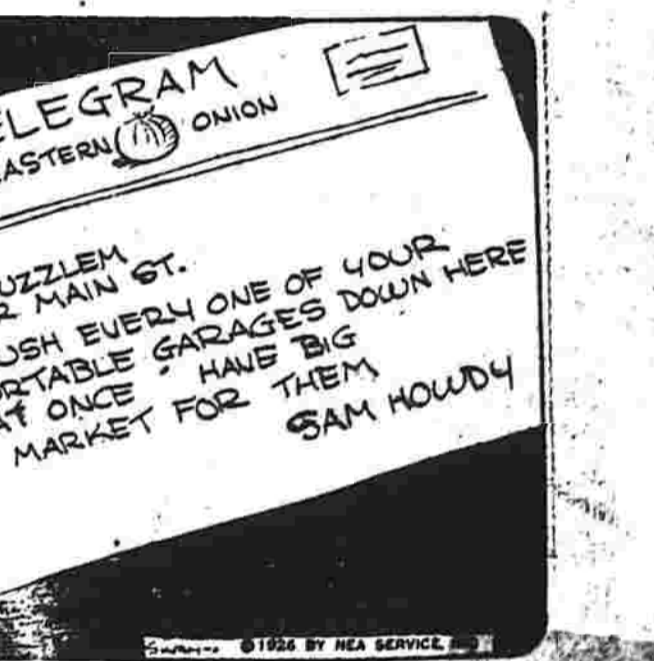 ELEGRAM
EASTERN ONION
UZZLEM
R MAIN ST.
USH EVERY ONE OF YOUR
ORTABLE GARAGES DOWN HERE
AT ONCE . HAVE BIG
MARKET FOR THEM
SAM HOWDY
©1926 BY NEA SERVICE,